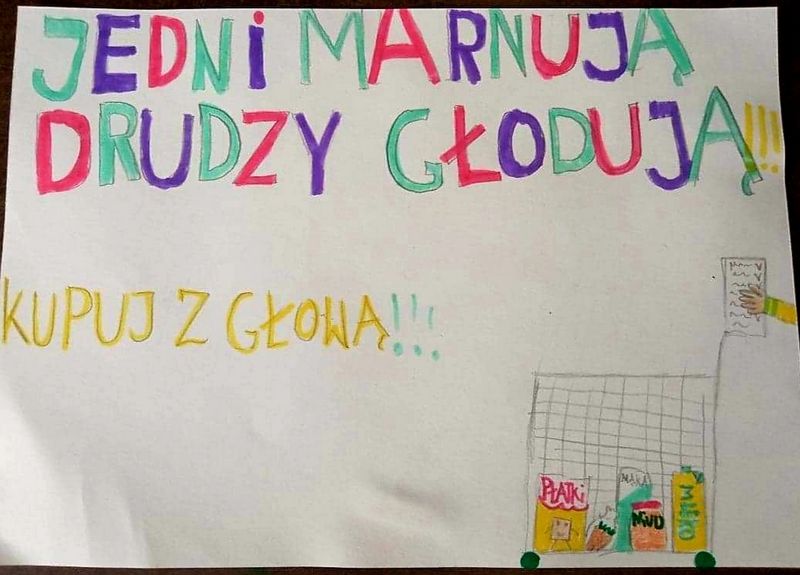 JEDNI MARNUJĄ
DRUDZY GŁODUJĄ!!!
KUPUJ Z GŁOWĄ!!!
PŁATKI
MĄKA
MIÓD
MLEKO